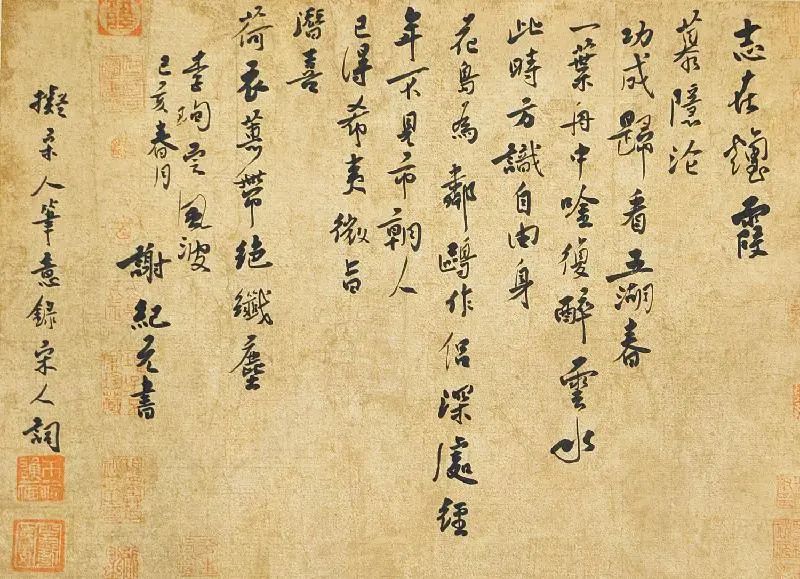 志在煙霞
慕隱淪
功成歸看五湖春
一葉舟中唫復醉雲水
此時方識自由身
花島為鄰鷗作侶深處經
年不見市朝人
已得希夷微旨
潛喜
荷衣蕙帶絕纖塵
李珣定風波
己亥春月
謝紀書
擬宋人筆意錄宋人詞